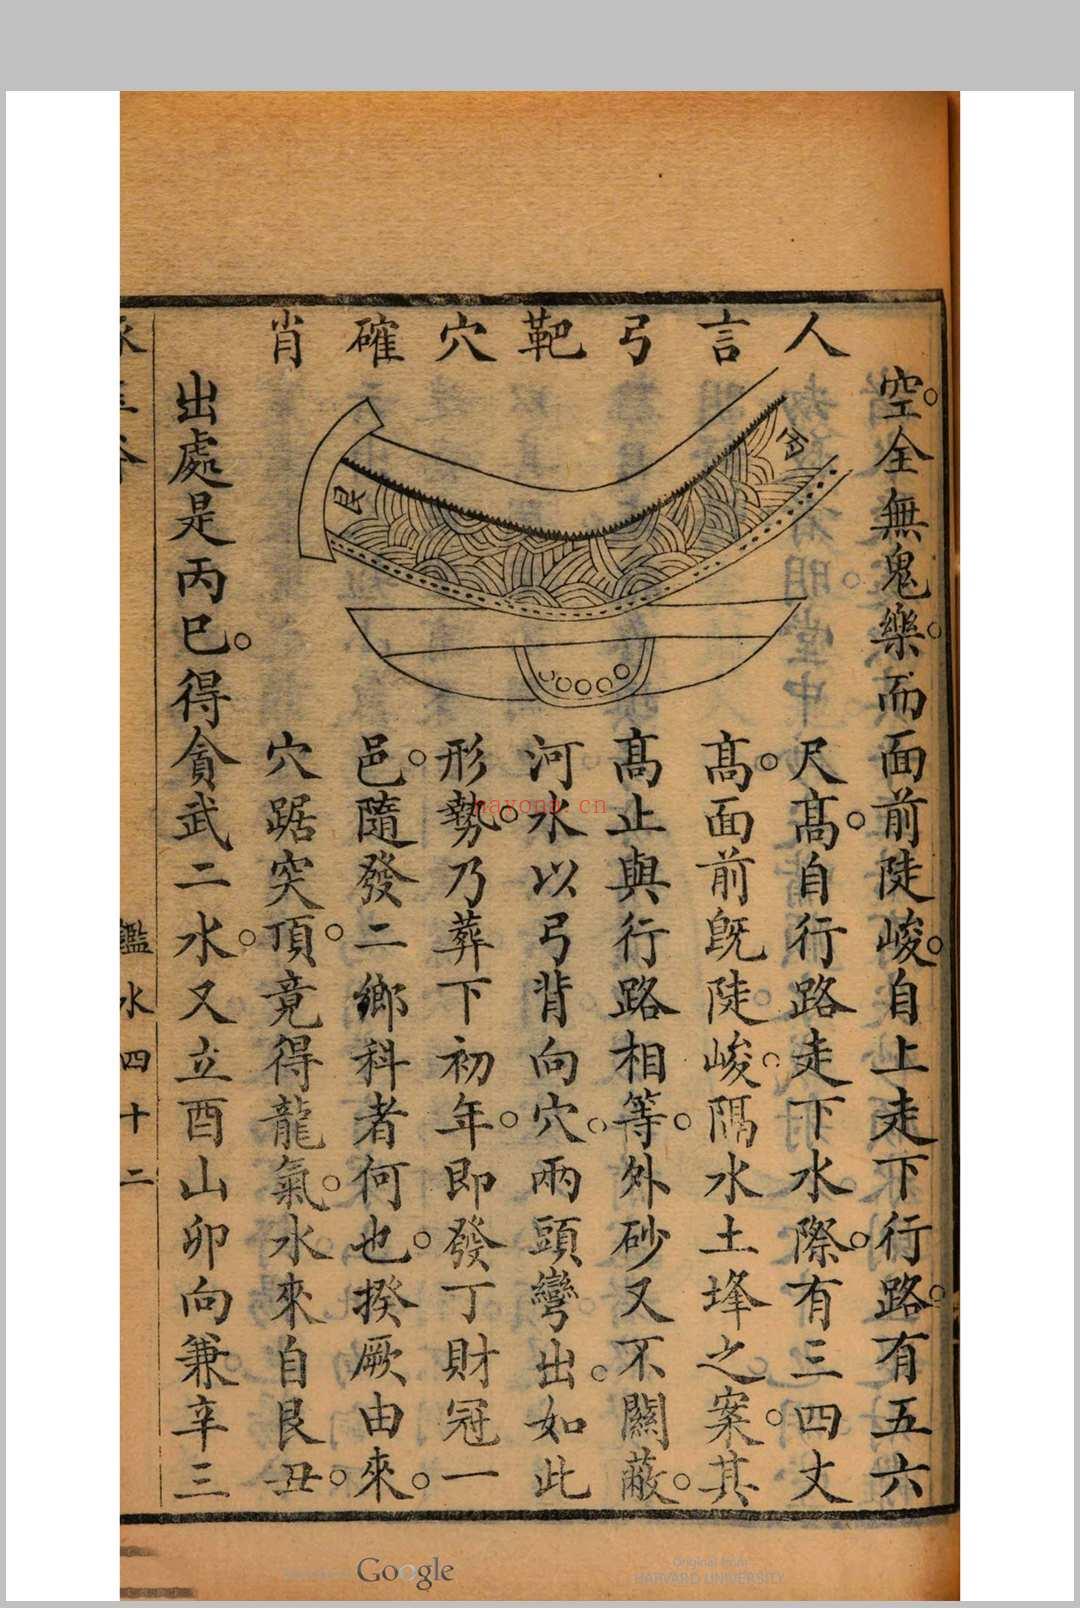 人言弓靶穴確肖
空全無鬼樂而面前陡峻自上走下行路有五六
尺髙自行路走下水際有三四丈
髙面前旣陡峻隔水土埄之案其
髙止與行路相等外砂又不關蔽
河水以弓背向穴兩頭彎出如此
形勢乃葬下初年即發丁財冠一
邑隨發二鄉科者何也揆厥由來
穴踞突頂竟得龍氣水來自艮丑
出處是丙巳得貪武二水又立酉山卯向兼辛三
艮
鑑水四十二
nayona.cn
Google
Original from
HARVARD UNIVERSITY